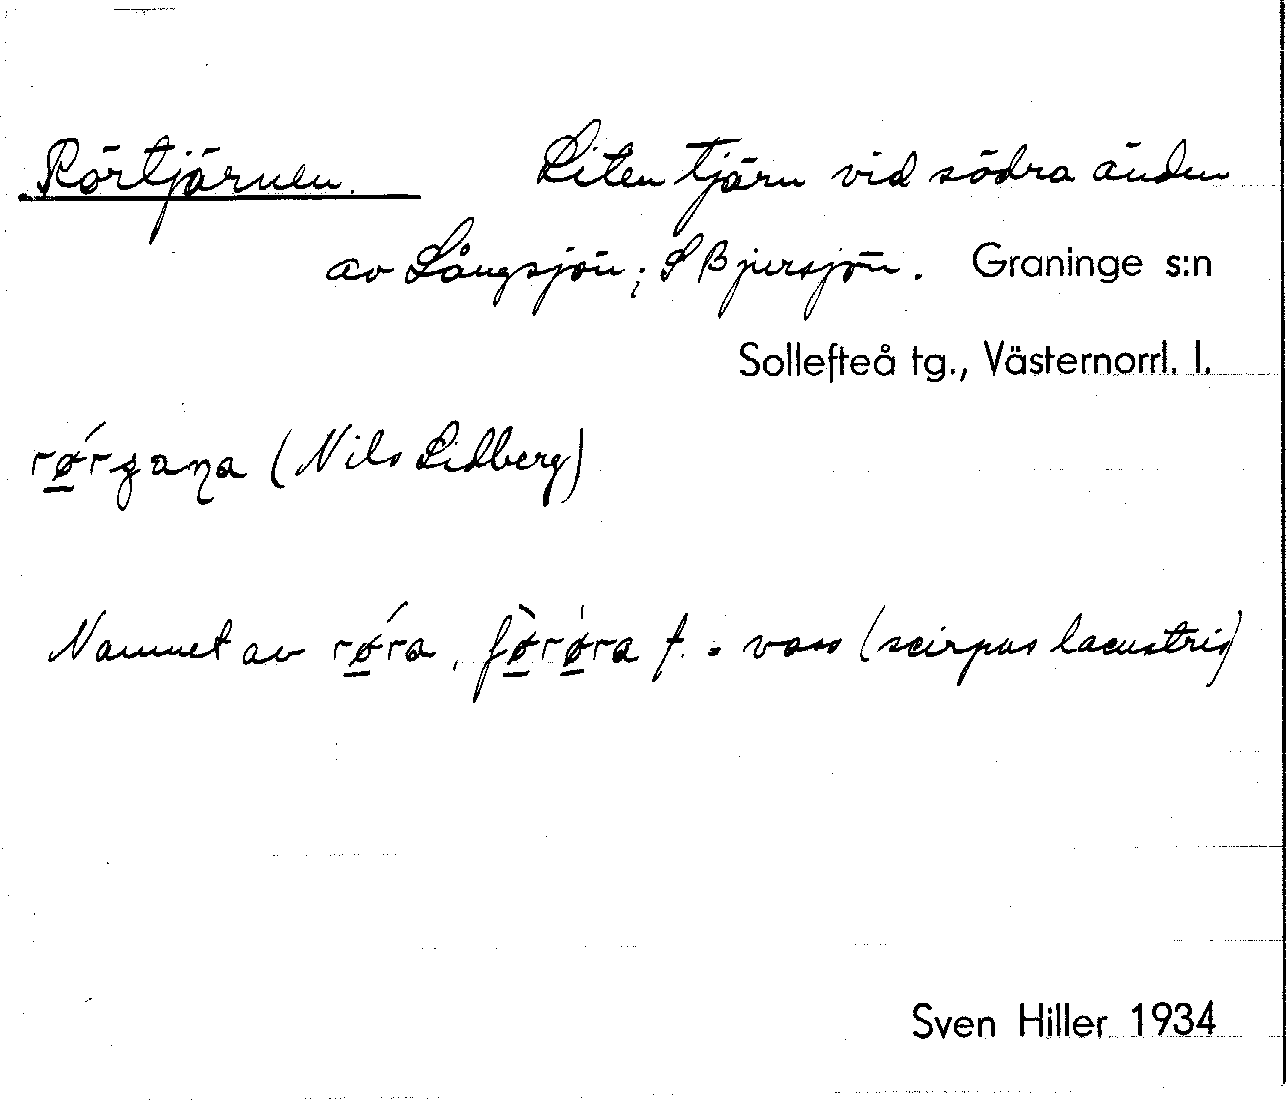 Rörtjärnen. Liten tjärn vid södra änden
av Långsjön; S Bjursjön. Graninge s:n
Sollefteå tg., Västernorrl. l.
(Nils Lidberg)
Namnet av røra, f. = vass (scirpus lacustris)
Sven Hiller 1934